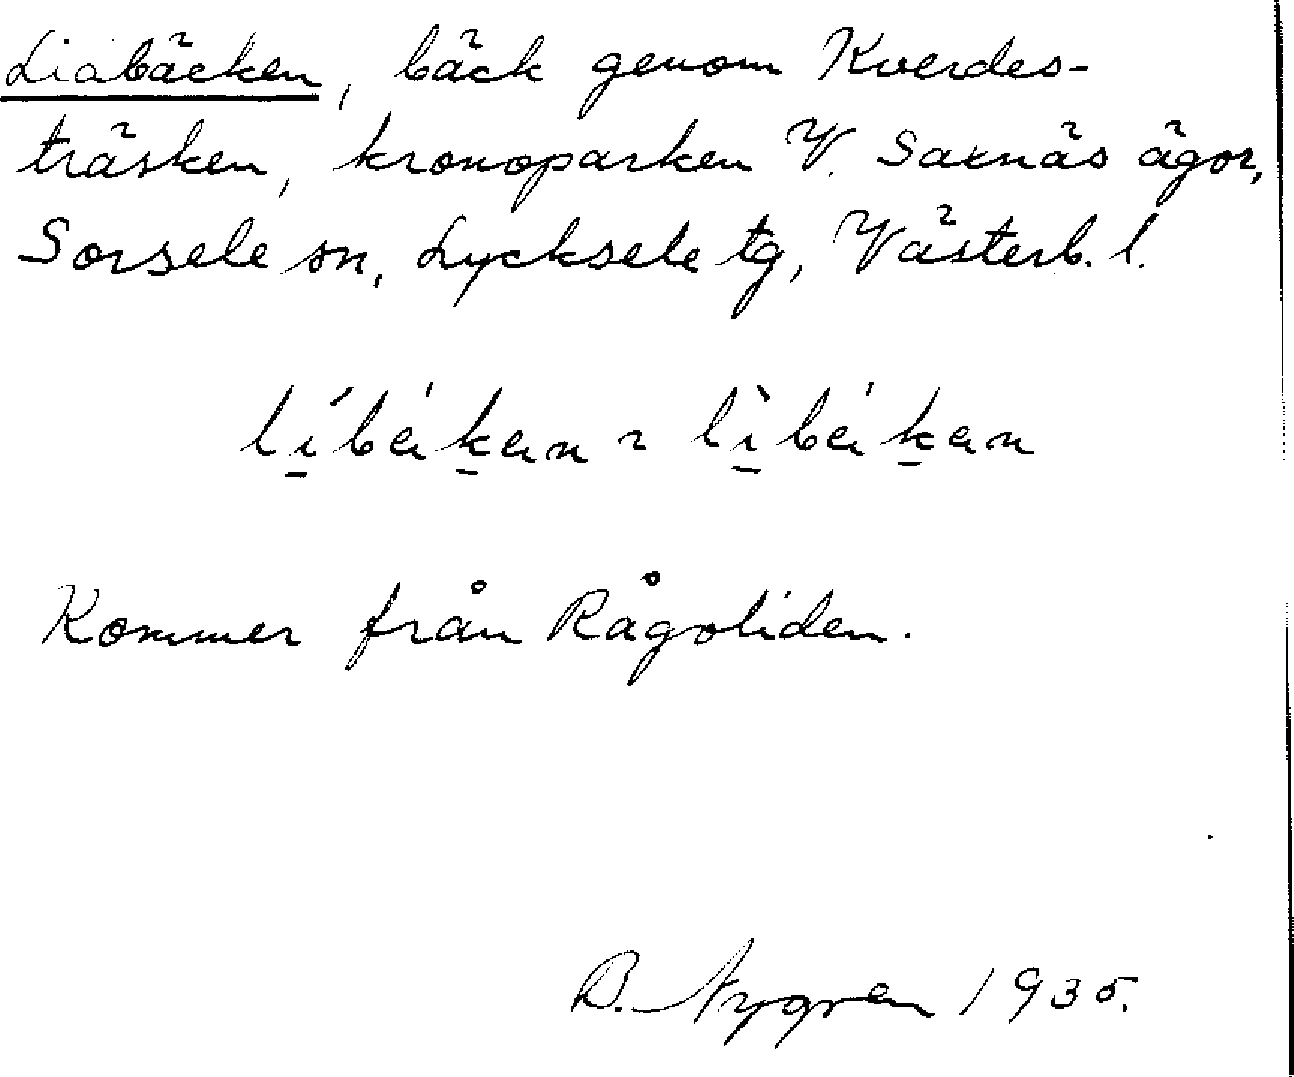 Liabäcken, bäck genom Kverdes-
träsken, kronoparken V. Saxnäs ägor,
Sorsele sn, Lycksele tg, Västerb. l.
Kommer från Rågoliden.
B. Nygren 1935.